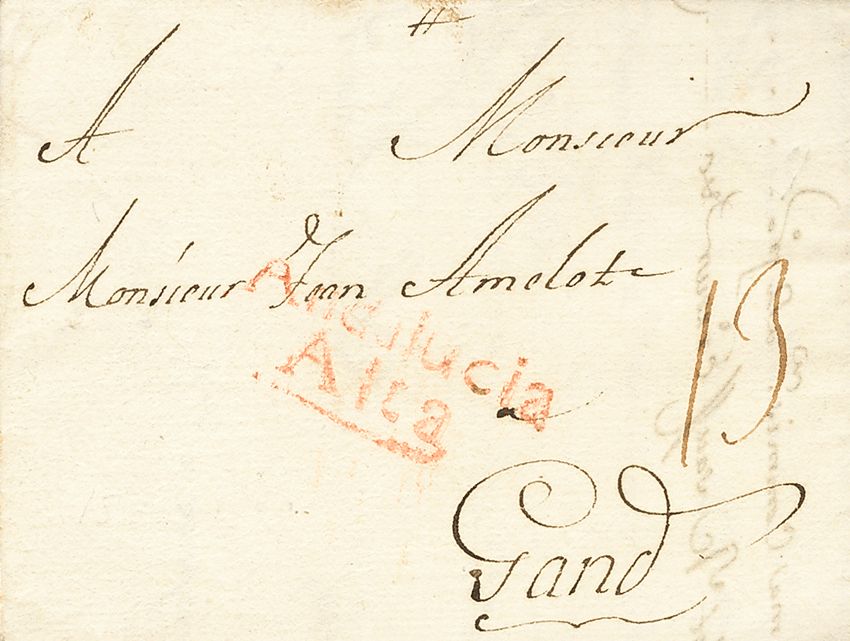 A Monsieur
Monsieur Jean Amelot
Andalucia
Alta
a
13
Gand